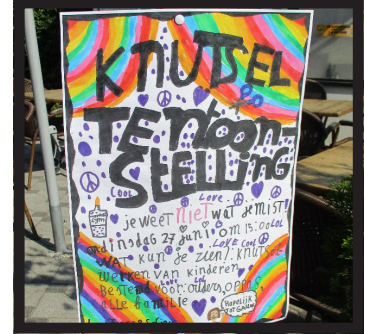 KNUTSEL
TENtoon-
STELLiNG
COOL
LOVE
je weet NiET wat je MiST!
op dinsdag 27 juni om 15:00
LOL
LOVE COOL
WAt kun je zien! KNUtSel
werken van kinderen
Love
LOL
Bestemd voor: ouders, oppas,
alle familie
Hopelijk
tot Gauw